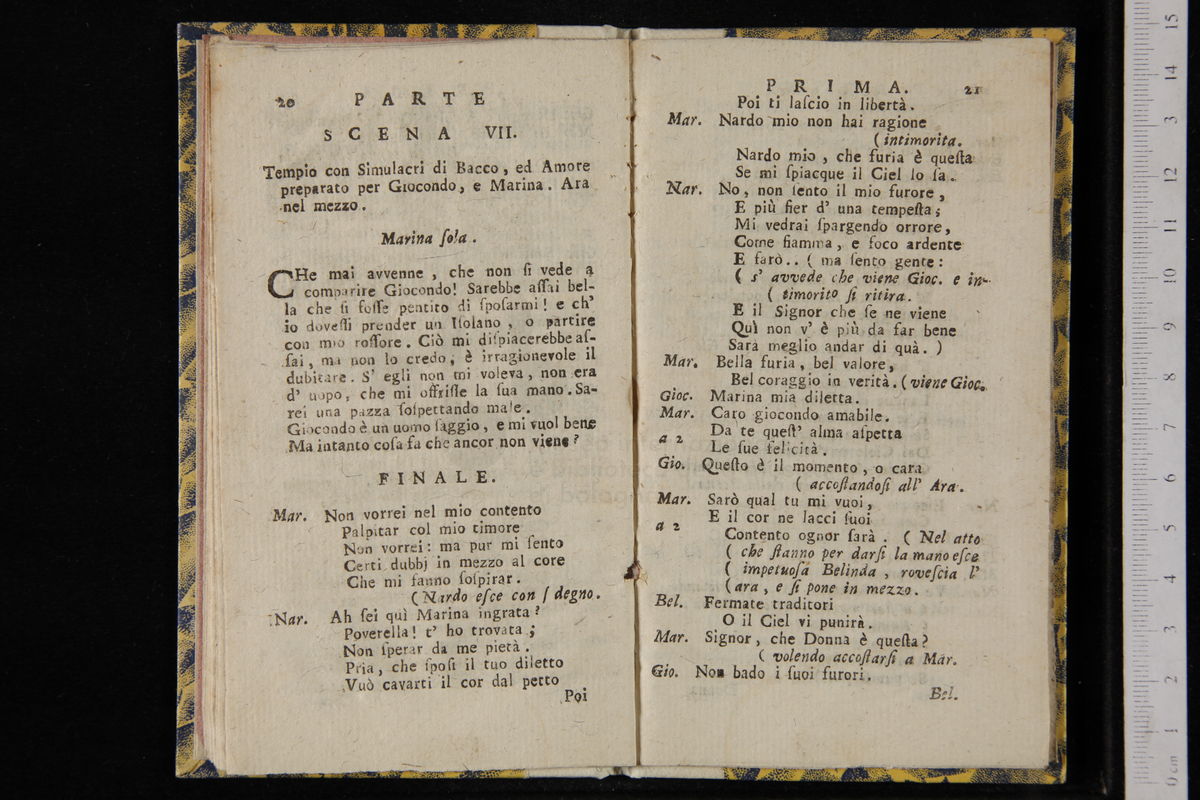 20 PARTE
SCENA VII.
Tempio con Simulacri di Bacco, ed Amore
preparato per Giocondo, e Marina. Ara
nel mezzo.
Marina ſola.
CHe mai avvenne, che non ſi vede a
comparire Giocondo! Sarebbe aſſai bel-
la che ſi foſſe pentito di ſpoſarmi! e ch'
io doveſſi prender un Iſolano, o partire
con mio roſſore. Ciò mi diſpiacerebbe aſ-
ſai, ma non lo credo, è irragionevole il
dubitare. S' egli non mi voleva, non era
d' uopo, che mi offriſſe la ſua mano. Sa-
rei una pazza ſoſpettando male.
Giocondo è un uomo ſaggio, e mi vuol bene
Ma intanto coſa fa che ancor non viene?
FINALE.
Mar. Non vorrei nel mio contento
Palpitar col mio timore
Non vorrei: ma pur mi ſento
Certi dubbj in mezzo al core
Che mi fanno ſoſpirar.
(Nardo eſce con ſdegno.
Nar. Ah ſei quì Marina ingrata?
Poverella! t' ho trovata;
Non ſperar da me pietà.
Pria, che ſpoſi il tuo diletto
Vuò cavarti il cor dal petto
Poi
PRIMA. 21
Poi ti laſcio in libertà.
Mar. Nardo mio non hai ragione
(intimorita.
Nardo mio, che furia è queſta
Se mi ſpiacque il Ciel lo ſa.
Nar. No, non ſento il mio furore,
E più fier d' una tempeſta;
Mi vedrai ſpargendo orrore,
Come fiamma, e foco ardente
E farò.. ( ma ſento gente:
( s' avvede che viene Gioc. e in-
( timorito ſi ritira.
E il Signor che ſe ne viene
Quì non v' è più da far bene
Sarà meglio andar di quà. )
Mar. Bella furia, bel valore,
Bel coraggio in verità. (viene Gioc.
Gioc. Marina mia diletta.
Mar. Caro giocondo amabile.
a 2 Da te queſt' alma aſpetta
Le ſue felicità.
Gio. Queſto è il momento, o cara
( accoſtandoſi all' Ara.
Mar. Sarò qual tu mi vuoi,
a 2 E il cor ne lacci ſuoi
Contento ognor ſarà. ( Nel atto
( che ſtanno per darſi la mano eſce
( impetuoſa Belinda, roveſcia l'
(ara, e ſi pone in mezzo.
Bel. Fermate traditori
O il Ciel vi punirà.
Mar. Signor, che Donna è queſta?
( volendo accoſtarſi a Mar.
Gio. Non bado i ſuoi furori.
Bel.
15
14
3
12
11
10
9
8
7
6
5
4
3
2
1
0 cm